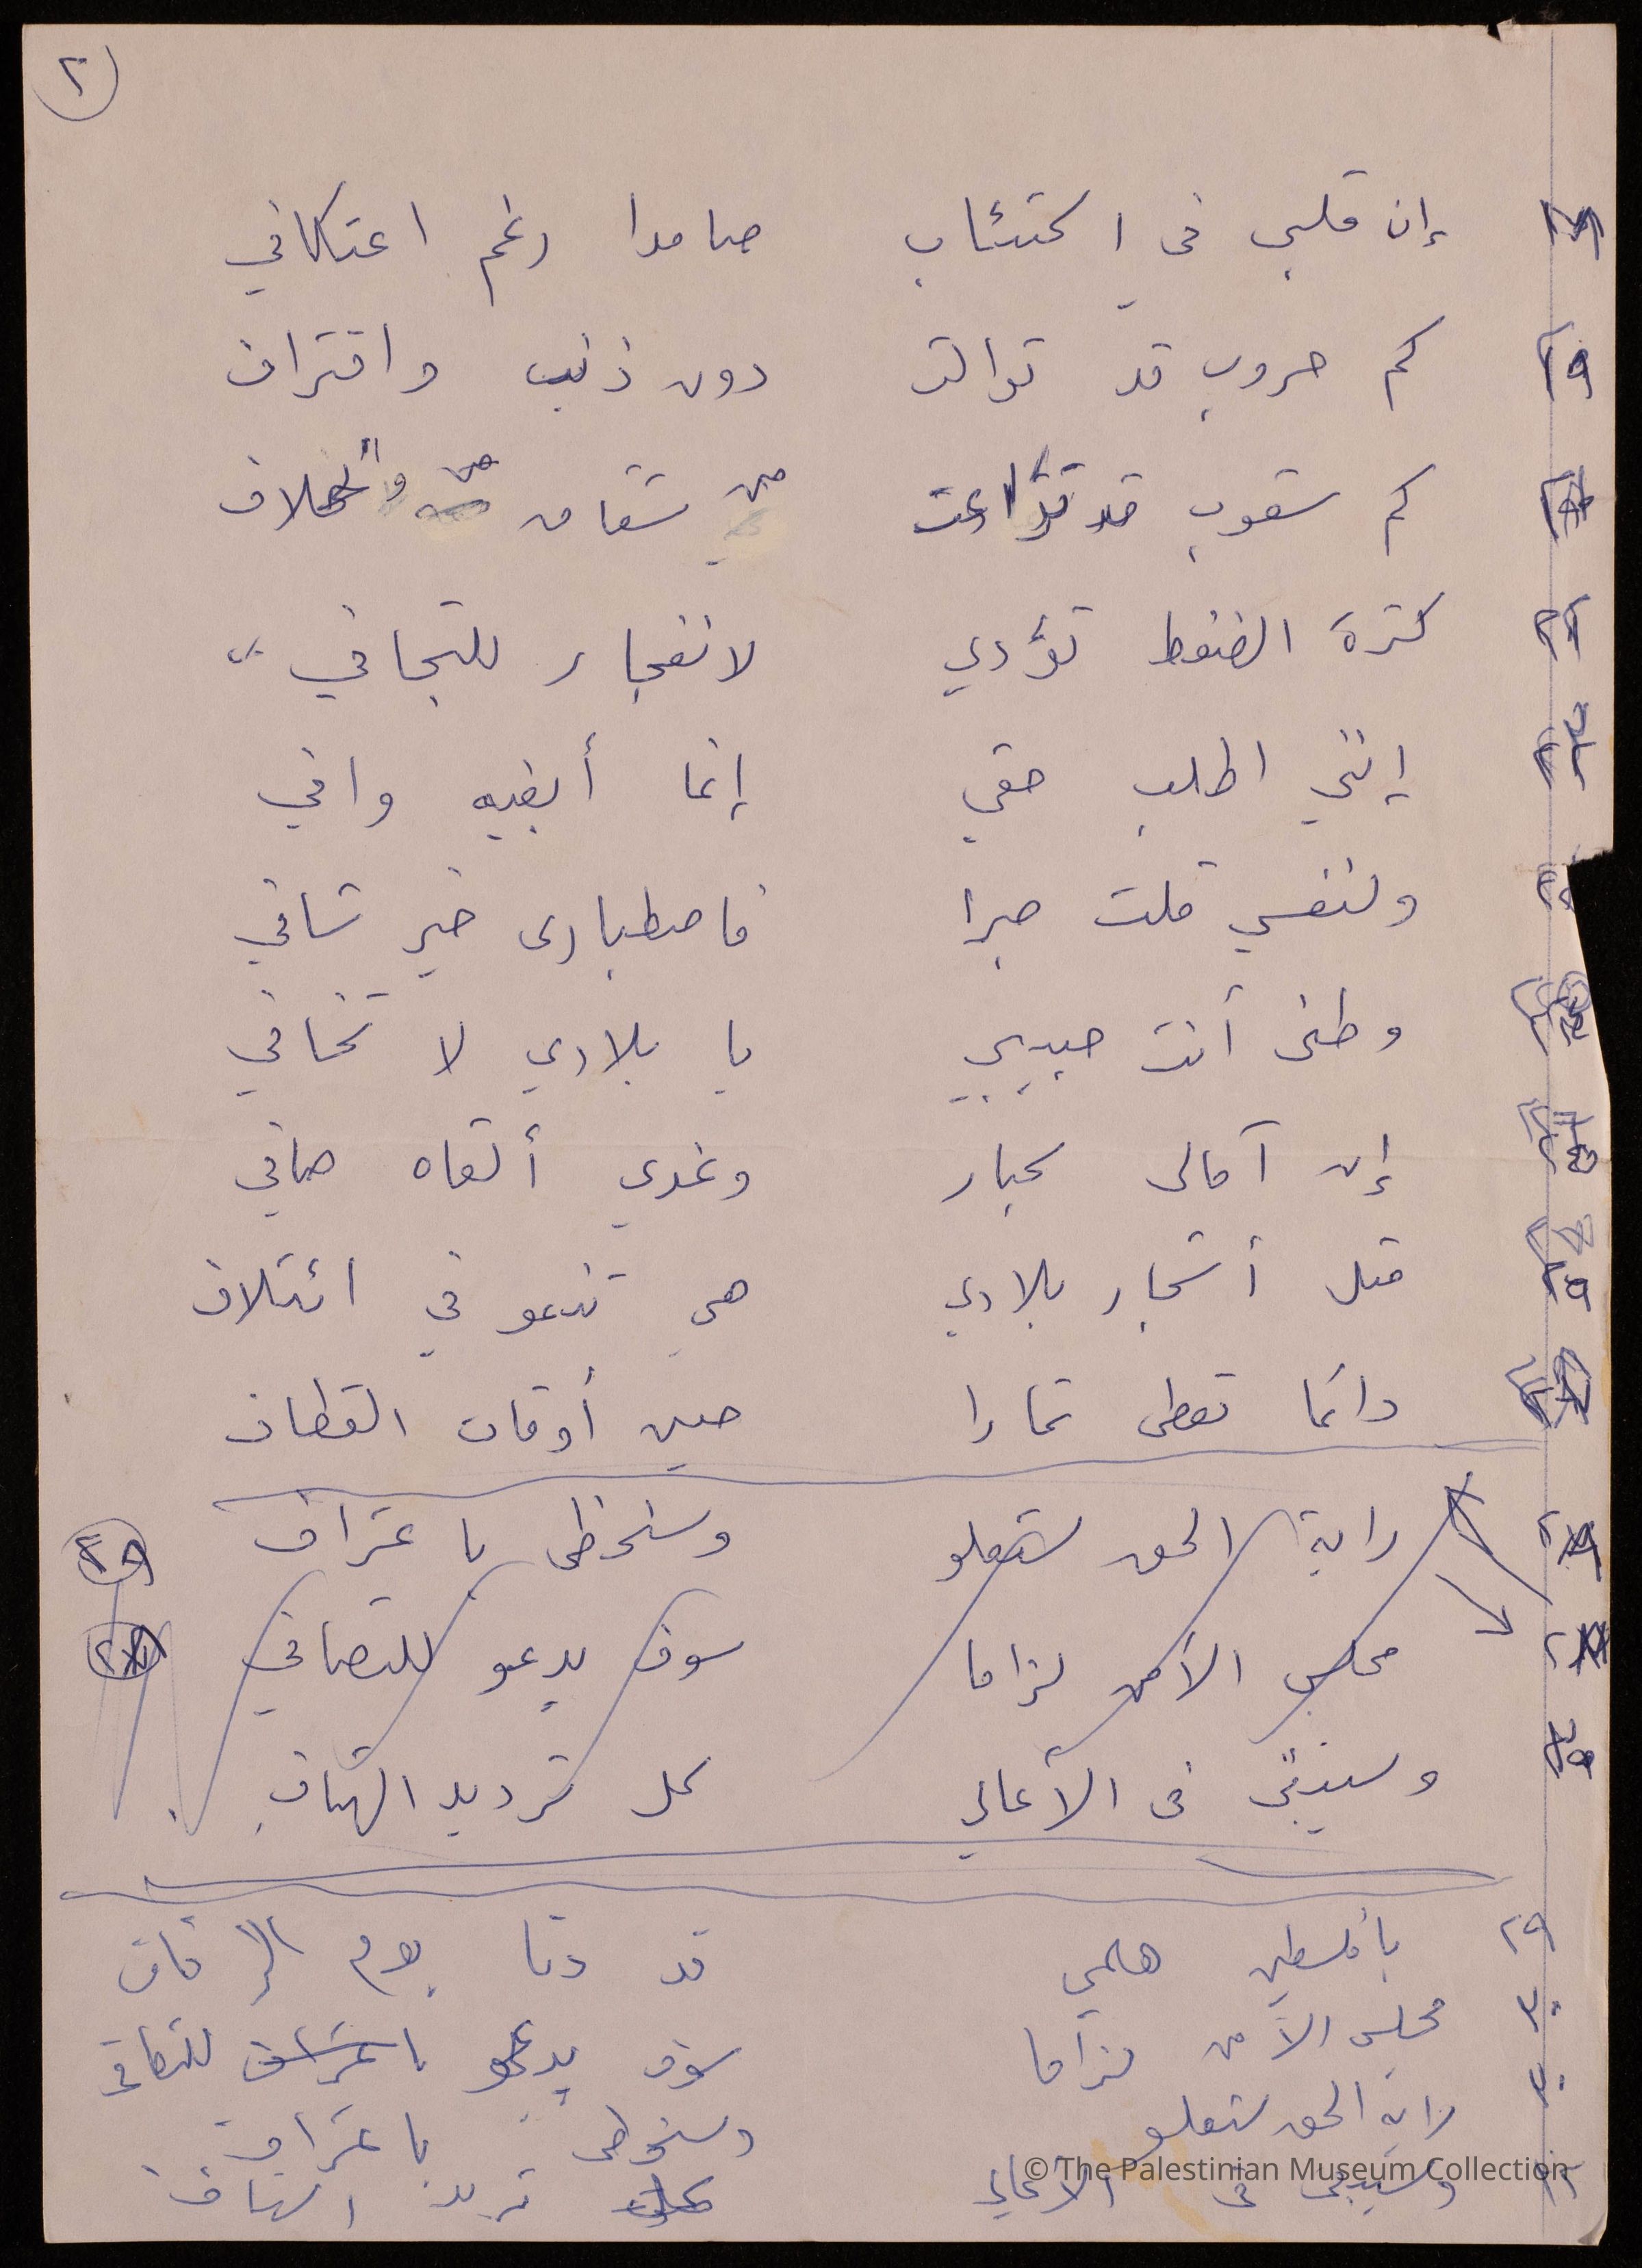 ٢
إن قلبي في اكتئاب صامدا رغم اعتكافي
كم حروب قد توالت دون ذنب واقتراف
كم شعوب قد تداعت من شقاق من وخلاف
كثرة الضغط تؤدي لانفجار للتجافي
إنني اطلب حقي إنما أبغيه وافي
ولنفسي قلت صبرا فاصطباري خير شافي
وطني أنت حبيبي يا بلادي لا تخافي
إن آمالي كبار وغدي ألقاه صافي
مثل أشجار بلادي هي تنمو في ائتلاف
دائما تعطي ثمارا حين أوقات القطاف
راية الحق ستعلو وسنحظى باعتراف
مجلس الأمن لزاما سوف يدعو للتصافي
وسيبقى في الأعالي كل ترديد الهتاف
٢٩ يا فلسطين هلمي قد دنا يوم الزفاف
٣٠ مجلس الأمن لزاما سوف يدعو باعتراف للتصافي
٣٠ راية الحق ستعلو وسنحظى باعتراف
وسيبقى في الأعالي الهتاف
© The Palestinian Museum Collection